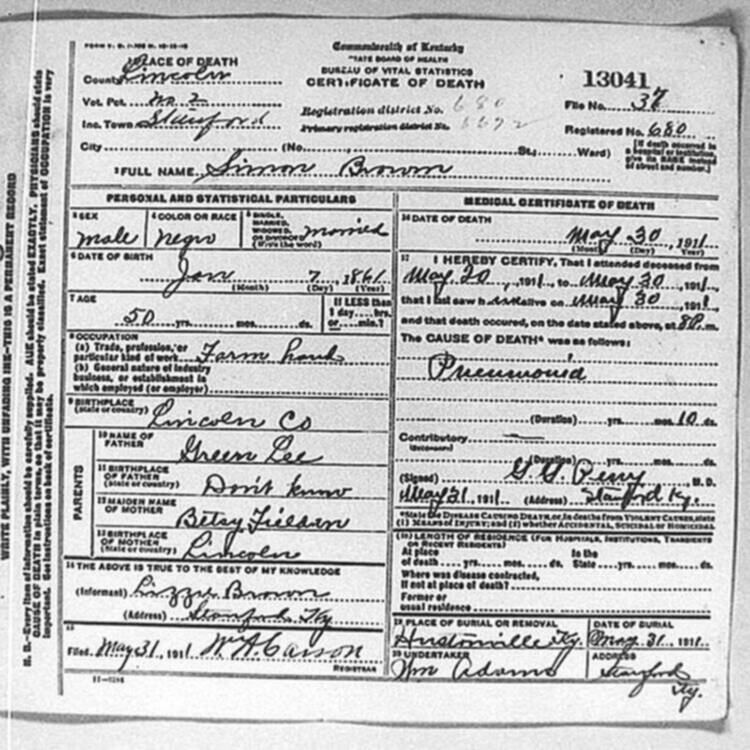 Commonwealth of Kentucky
STATE BOARD OF HEALTH
BUREAU OF VITAL STATISTICS
CERTIFICATE OF DEATH
1 PLACE OF DEATH
County Lincoln
Vot. Pct. No. 2
Inc. Town Stanford
City (No. St.; Ward)
Registration district No. 680
Primary registration district No.
13041
File No. 37
Registered No. 680
[If death occurred in
a hospital or institution,
give its NAME instead
of street and number.]
2 FULL NAME Simon Brown
PERSONAL AND STATISTICAL PARTICULARS
3 SEX
male
4 COLOR OR RACE
negro
5 SINGLE,
MARRIED,
WIDOWED,
OR DIVORCED
(Write the word)
married
6 DATE OF BIRTH
Jan 7, 1861
(Month) (Day) (Year)
7 AGE
50 yrs. mos. ds.
If LESS than
1 day.... hrs.
or.... min.?
8 OCCUPATION
(a) Trade, profession, or
particular kind of work Farm hand
(b) General nature of industry
business, or establishment in
which employed (or employer)
9 BIRTHPLACE
(State or country) Lincoln Co
PARENTS
10 NAME OF
FATHER Green Lee
11 BIRTHPLACE
OF FATHER
(State or country) Don't know
12 MAIDEN NAME
OF MOTHER Betsy Fielden
13 BIRTHPLACE
OF MOTHER
(State or country) Lincoln
14 THE ABOVE IS TRUE TO THE BEST OF MY KNOWLEDGE
(Informant) Lizzie Brown
(Address) Stanford Ky
15
Filed May 31, 1911 W. A. Carson
REGISTRAR
MEDICAL CERTIFICATE OF DEATH
16 DATE OF DEATH
May 30, 1911
(Month) (Day) (Year)
17 I HEREBY CERTIFY, That I attended deceased from
May 20, 1911, to May 30, 1911
that I last saw h alive on May 30, 1911
and that death occured, on the date stated above, at 8P.m.
The CAUSE OF DEATH* was as follows:
Pneumonia
(Duration) yrs. mos. 10 ds.
Contributory
(Secondary)
(Duration) yrs. mos. ds.
(Signed) Perry M. D.
May 31, 1911 (Address) Stanford Ky.
*State the DISEASE CAUSING DEATH, or, in deaths from VIOLENT CAUSES, state
(1) MEANS OF INJURY; and (2) whether ACCIDENTAL, SUICIDAL or HOMICIDAL
18 LENGTH OF RESIDENCE (FOR HOSPITALS, INSTITUTIONS, TRANSIENTS
OR RECENT RESIDENTS)
At place In the
of death yrs. mos. ds. State yrs. mos. ds.
Where was disease contracted,
If not at place of death?
Former or
usual residence
19 PLACE OF BURIAL OR REMOVAL
Hustonville Ky.
DATE OF BURIAL
May 31, 1911
20 UNDERTAKER
Wm Adams
ADDRESS
Stanford
Ky.
WRITE PLAINLY, WITH UNFADING INK—THIS IS A PERMANENT RECORD
N. B.—Every item of information should be carefully supplied. AGE should be stated EXACTLY. PHYSICIANS should state
CAUSE OF DEATH in plain terms, so that it may be properly classified. Exact statement of OCCUPATION is very
important. See instructions on back of certificate.